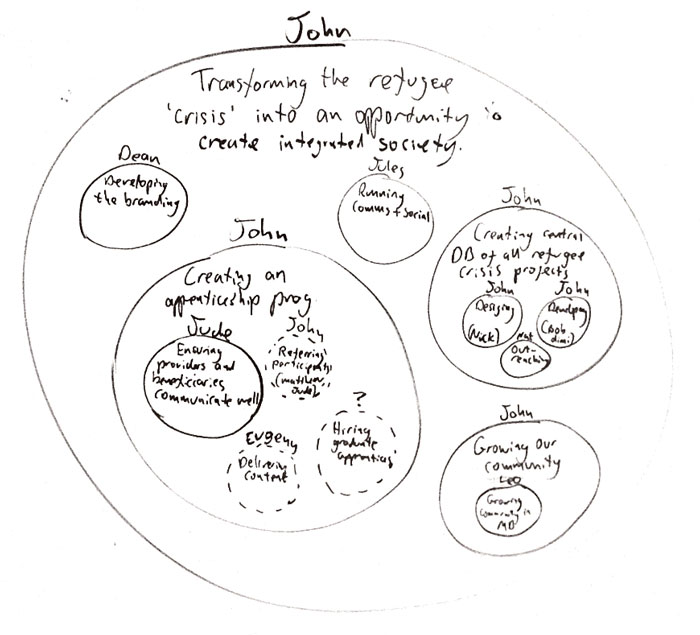 John
Transforming the refugee
'crisis' into an opportunity to
create integrated society.
Dean
Developing
the branding
Jules
Running
Comms + Social
John
Creating central
DB of all refugee
crisis projects
John
Designing
(Nick)
John
Developing
(Bob
dimi)
Nat
Out-
reaching
John
Creating an
apprenticeship prog.
Jude
Ensuring
providers and
beneficiaries
communicate well
John
Referring
participants
(matthew
Jude)
Evgeny
Delivering
content
?
Hiring
graduate
apprentices
John
Growing our
community
Leo
Growing
community in